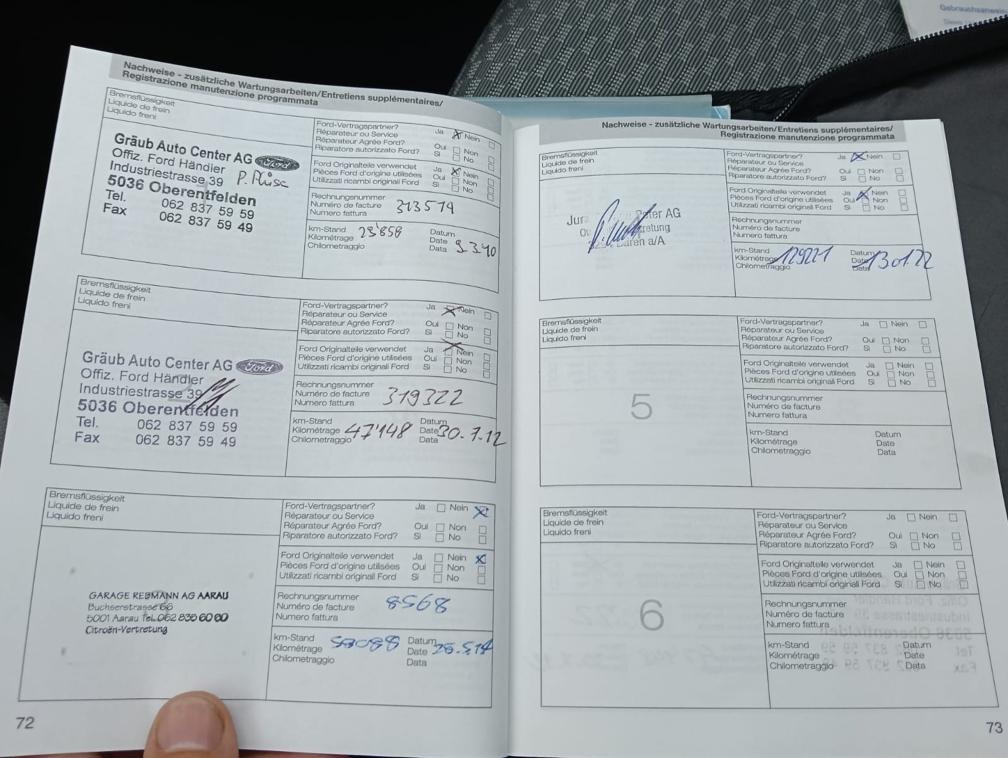 Gebrauchsanweisu
Nachweise - zusätzliche Wartungsarbeiten/Entretiens supplémentaires/
Registrazione manutenzione programmata
Bremsflüssigkeit
Liquide de frein
Liquido freni
Gräub Auto Center AG Ford
Offiz. Ford Händler
Industriestrasse 39
5036 Oberentfelden
Tel. 062 837 59 59
Fax 062 837 59 49
Ford-Vertragspartner? Ja X Nein
Réparateur ou Service
Réparateur Agrée Ford? Oui Non
Riparatore autorizzato Ford? Si No
Ford Originalteile verwendet Ja X Nein
Pièces Ford d'origine utilisées Oui Non
Utilizzati ricambi originali Ford Si No
Rechnungsnummer
Numéro de facture 313519
Numero fattura
km-Stand Datum
Kilométrage Date
Chilometraggio Data
Bremsflüssigkeit
Liquide de frein
Liquido freni
Gräub Auto Center AG Ford
Offiz. Ford Händler
Industriestrasse 39
5036 Oberentfelden
Tel. 062 837 59 59
Fax 062 837 59 49
Ford-Vertragspartner? Ja X Nein
Réparateur ou Service
Réparateur Agrée Ford? Oui Non
Riparatore autorizzato Ford? Si No
Ford Originalteile verwendet Ja X Nein
Pièces Ford d'origine utilisées Oui Non
Utilizzati ricambi originali Ford Si No
Rechnungsnummer
Numéro de facture 319322
Numero fattura
km-Stand Datum
Kilométrage 47'148 Date 30.7.12
Chilometraggio Data
Bremsflüssigkeit
Liquide de frein
Liquido freni
GARAGE REBMANN AG AARAU
Buchserstrasse
5001 Aarau Tel. 062 836 60 60
Citroën-Vertretung
Ford-Vertragspartner? Ja Nein X
Réparateur ou Service
Réparateur Agrée Ford? Oui Non
Riparatore autorizzato Ford? Si No
Ford Originalteile verwendet Ja Nein X
Pièces Ford d'origine utilisées Oui Non
Utilizzati ricambi originali Ford Si No
Rechnungsnummer
Numéro de facture 8568
Numero fattura
km-Stand Datum
Kilométrage Date
Chilometraggio Data
72
Nachweise - zusätzliche Wartungsarbeiten/Entretiens supplémentaires/
Registrazione manutenzione programmata
Bremsflüssigkeit
Liquide de frein
Liquido freni
AG
a/A
Ford-Vertragspartner? Ja X Nein
Réparateur ou Service
Réparateur Agrée Ford? Oui Non
Riparatore autorizzato Ford? Si No
Ford Originalteile verwendet Ja X Nein
Pièces Ford d'origine utilisées Oui Non
Utilizzati ricambi originali Ford Si No
Rechnungsnummer
Numéro de facture
Numero fattura
km-Stand Datum
Kilométrage 129221 Date
Chilometraggio Data
Bremsflüssigkeit
Liquide de frein
Liquido freni
5
Ford-Vertragspartner? Ja Nein
Réparateur ou Service
Réparateur Agrée Ford? Oui Non
Riparatore autorizzato Ford? Si No
Ford Originalteile verwendet Ja Nein
Pièces Ford d'origine utilisées Oui Non
Utilizzati ricambi originali Ford Si No
Rechnungsnummer
Numéro de facture
Numero fattura
km-Stand Datum
Kilométrage Date
Chilometraggio Data
Bremsflüssigkeit
Liquide de frein
Liquido freni
6
Ford-Vertragspartner? Ja Nein
Réparateur ou Service
Réparateur Agrée Ford? Oui Non
Riparatore autorizzato Ford? Si No
Ford Originalteile verwendet Ja Nein
Pièces Ford d'origine utilisées Oui Non
Utilizzati ricambi originali Ford Si No
Rechnungsnummer
Numéro de facture
Numero fattura
km-Stand Datum
Kilométrage Date
Chilometraggio Data
73